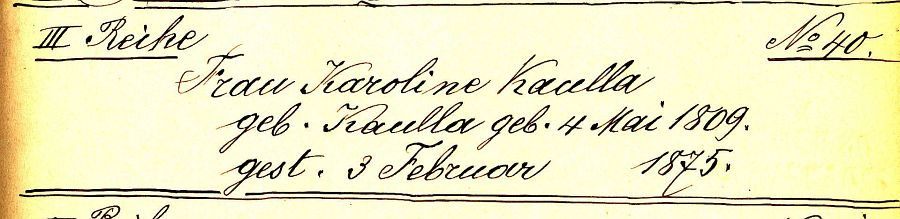 III Reihe
No 40.
Frau Karoline Kaulla
geb. Kaulla geb. 4 Mai 1809.
gest. 3 Februar 1875.
Reihe